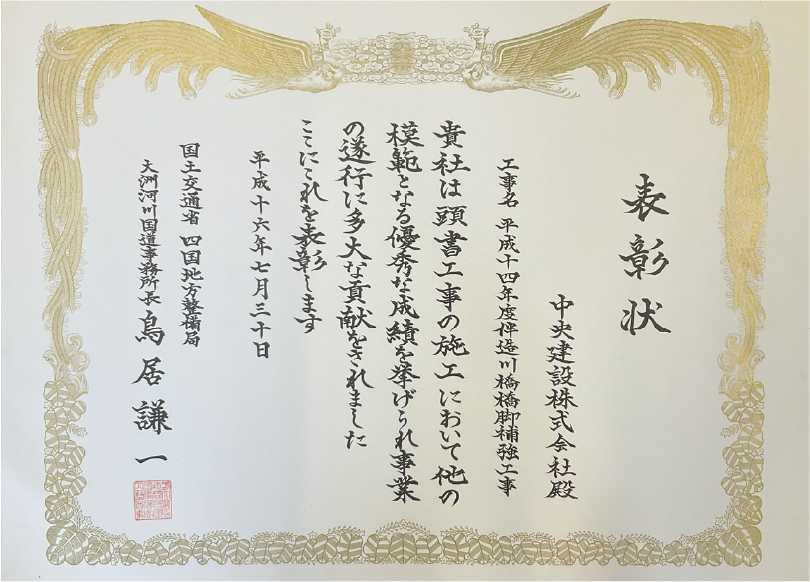 表彰状
中央建設株式会社殿
工事名 平成十四年度伴造川橋橋脚補強工事
貴社は頭書工事の施工において他の
模範となる優秀な成績を挙げられ事業
の遂行に多大な貢献をされました
ここにこれを表彰します
平成十六年七月三十日
国土交通省 四国地方整備局
大洲河川国道事務所長 鳥居謙一